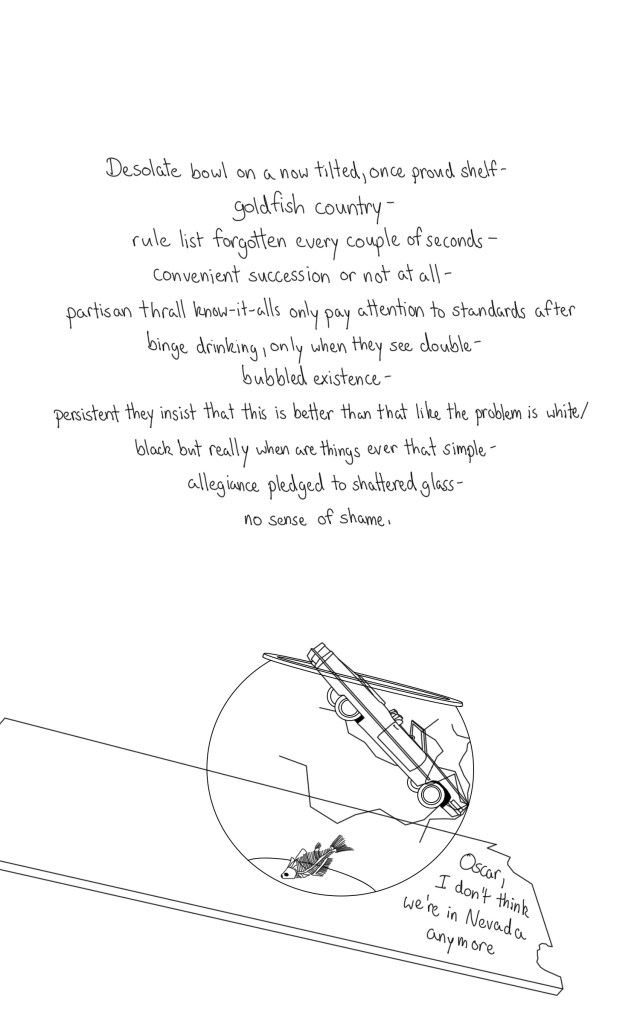 Desolate bowl on a now tilted, once proud shelf-
goldfish country-
rule list forgotten every couple of seconds-
convenient succession or not at all-
partisan thrall know-it-alls only pay attention to standards after
binge drinking, only when they see double-
bubbled existence-
persistent they insist that this is better than that like the problem is white/
black but really when are things ever that simple-
allegiance pledged to shattered glass-
no sense of shame.
Oscar,
I don't think
we're in Nevada
anymore